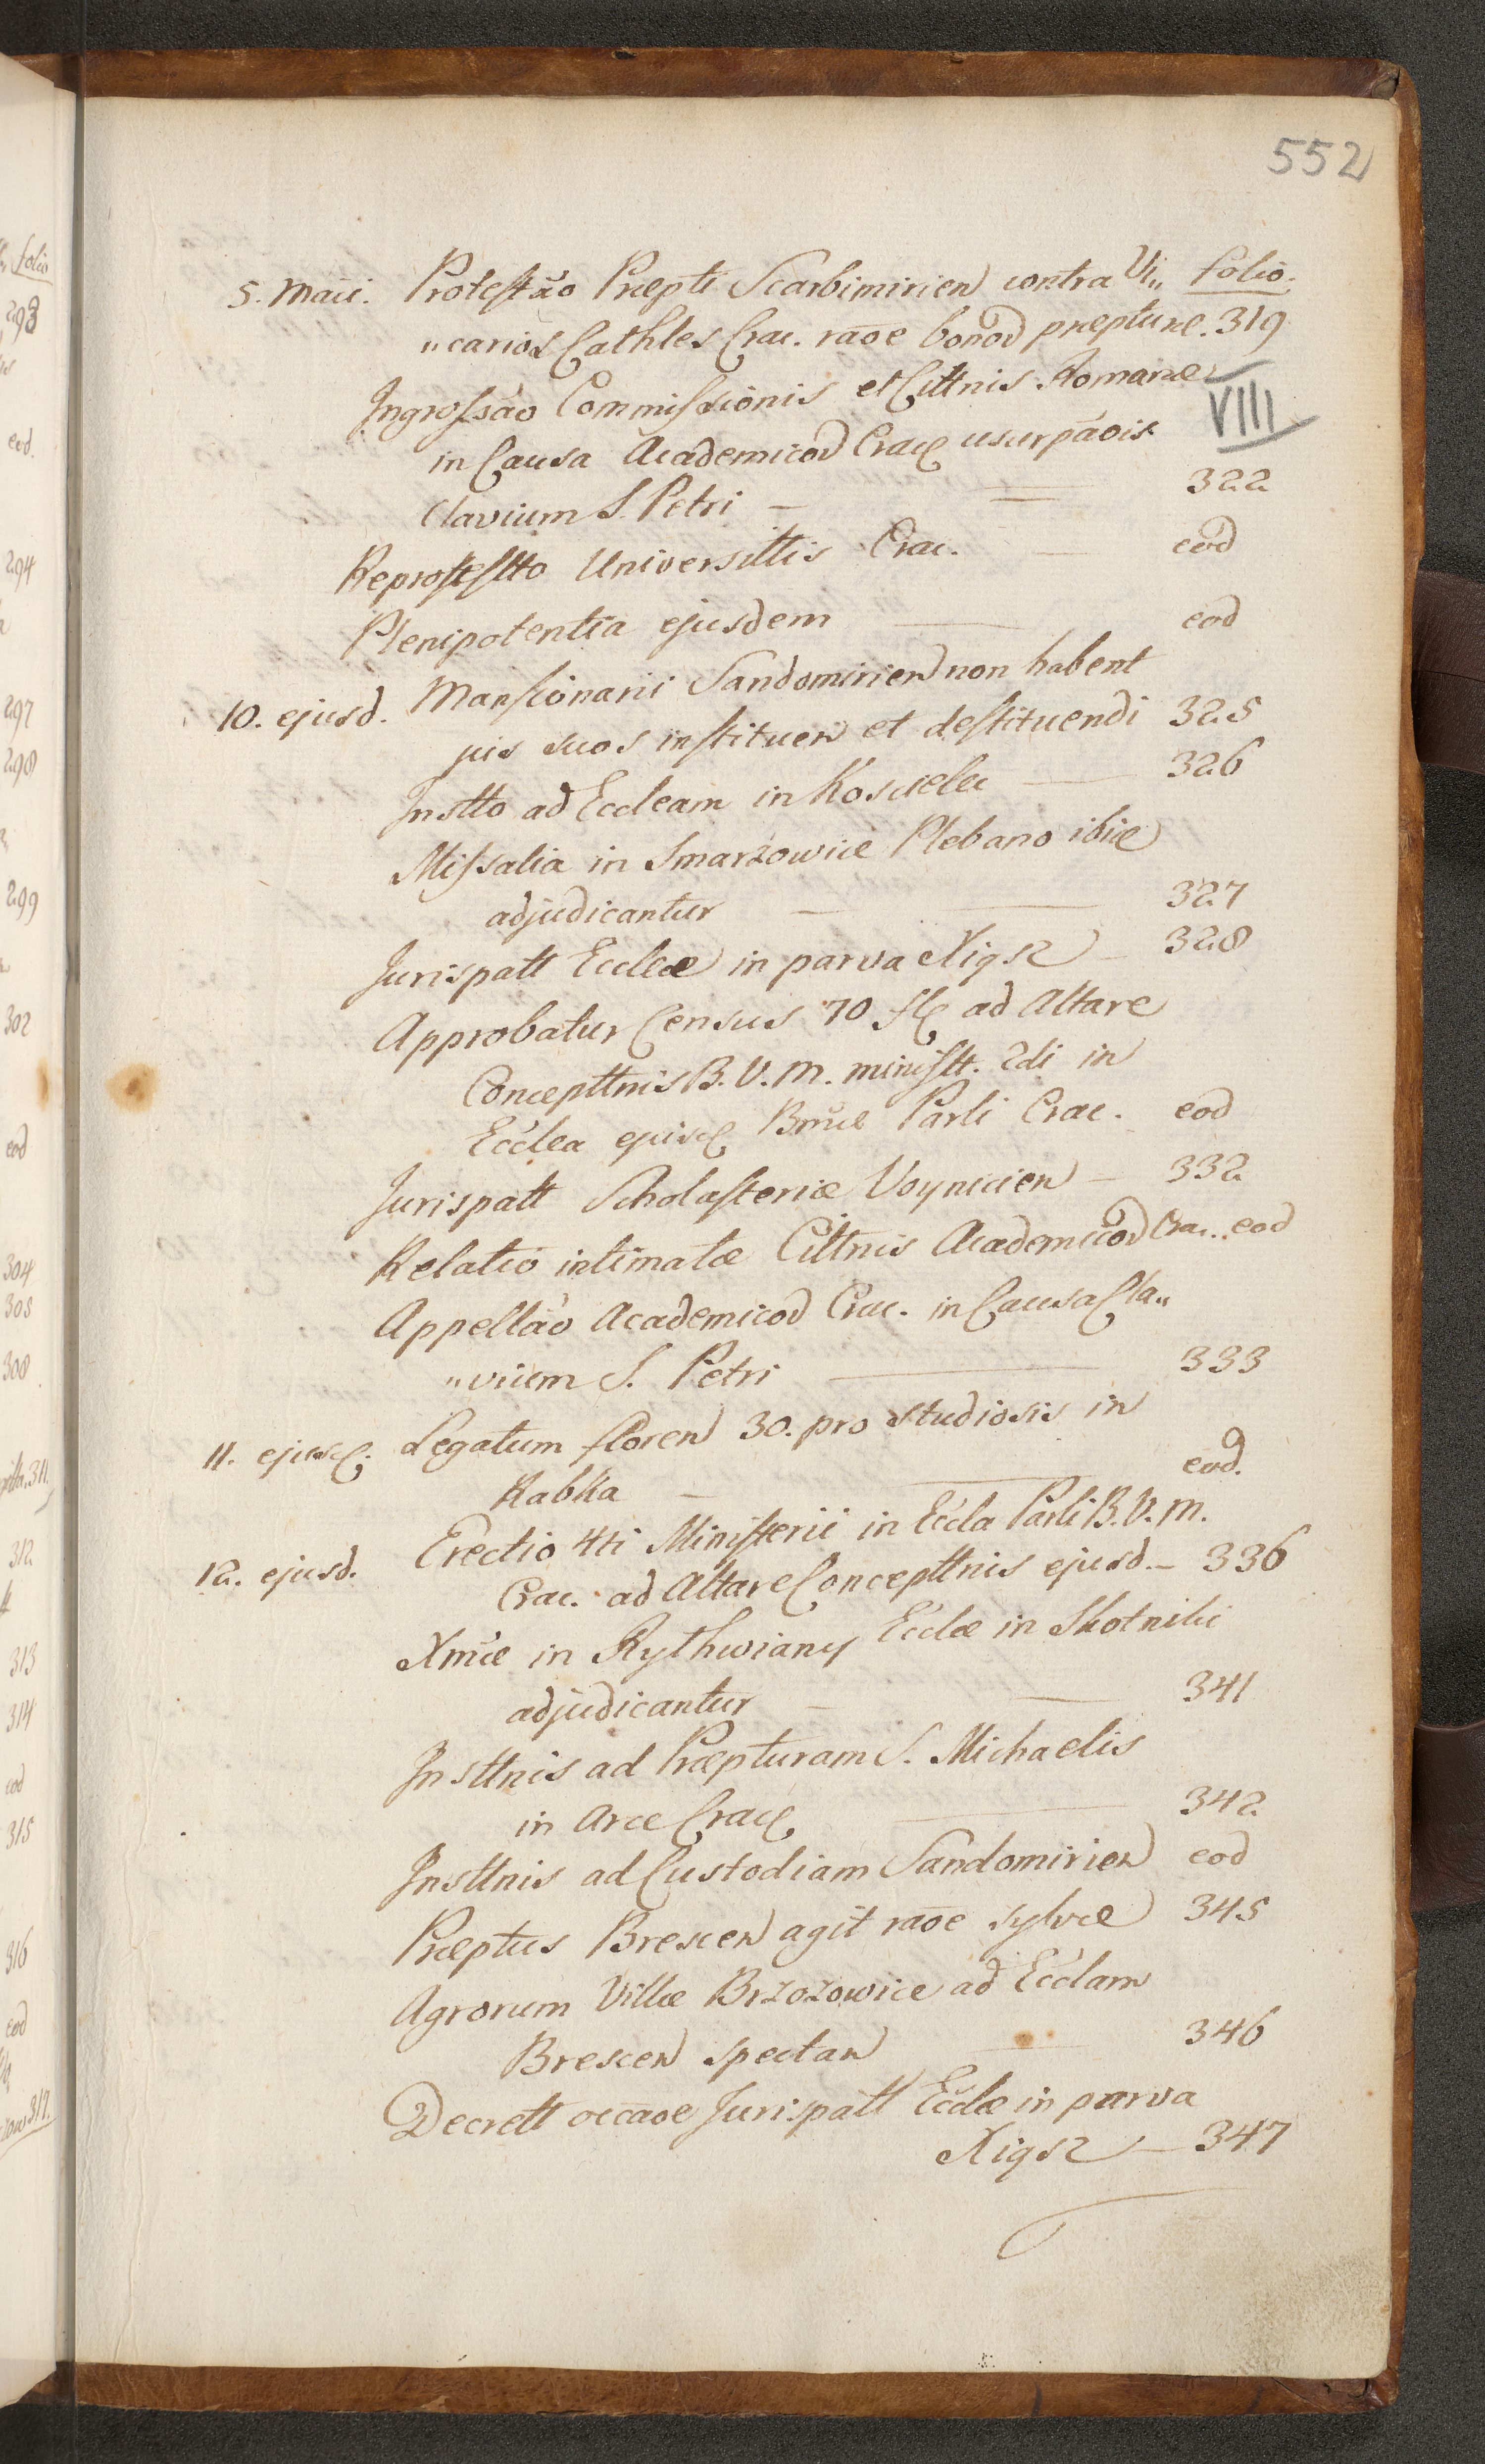 552
5. Maii. Protestão Præpti Scarbimirien contra Vi„ folio.
„carios Cathles Crac. raõe bonoꝝ præpturæ. 319
Ingrossão Commissionis et Cittnis Romanæ
VIII
in Causa Academicoꝝ Crac usurpãois
Clavium S. Petri — 322
Reprotestto Universittis Crac. — eod
Plenipotentia ejusdem — eod
10. ejusd. Mansionarii Sandomirien non habent
jus suos instituen et destituendi 325
Instto ad Eccleam in Koscielec — 326
Missalia in Smarzowice Plebano ibid
adjudicantur — 327
Jurispatt Eccleæ in parva Xigsz — 328
Approbatur Census 70 fl ad Altare
Concepttnis B. V. M. ministt. 2di in
Ecclea ejusd Bmæ Parli Crac. eod
Jurispatt Scholasteriæ Voynicien — 332
Relatio intimatæ Cittnis Academicoꝝ Crac. eod
Appellão Academicoꝝ Crac. in Causa Cla„
„vium S. Petri — 333
11. ejusd. Legatum floren 30. pro studiosis in
Rabka — eod.
12. ejusd. Erectio 4ti Ministerii in Eccla Parli B. V. M.
Crac. ad Altare Concepttnis ejusd. — 336
Xmæ in Rythwiany Ecclæ in Skotniki
adjudicantur — 341
Insttnis ad Præpturam S. Michaelis
in Arce Crac — 342
Insttnis ad Custodiam Sandomirien eod
Præptus Brescen agit raõe sylvæ 345
Agrorum Villæ Brzozowice ad Ecclam
Brescen spectan — 346
Decrett occaõe Jurispatt Ecclæ in parva
Xigsz — 347
folio
293
eod.
294
297
298
299
302
eod
304
305
308
311.
312
313
314
eod
315
316
eod
317.